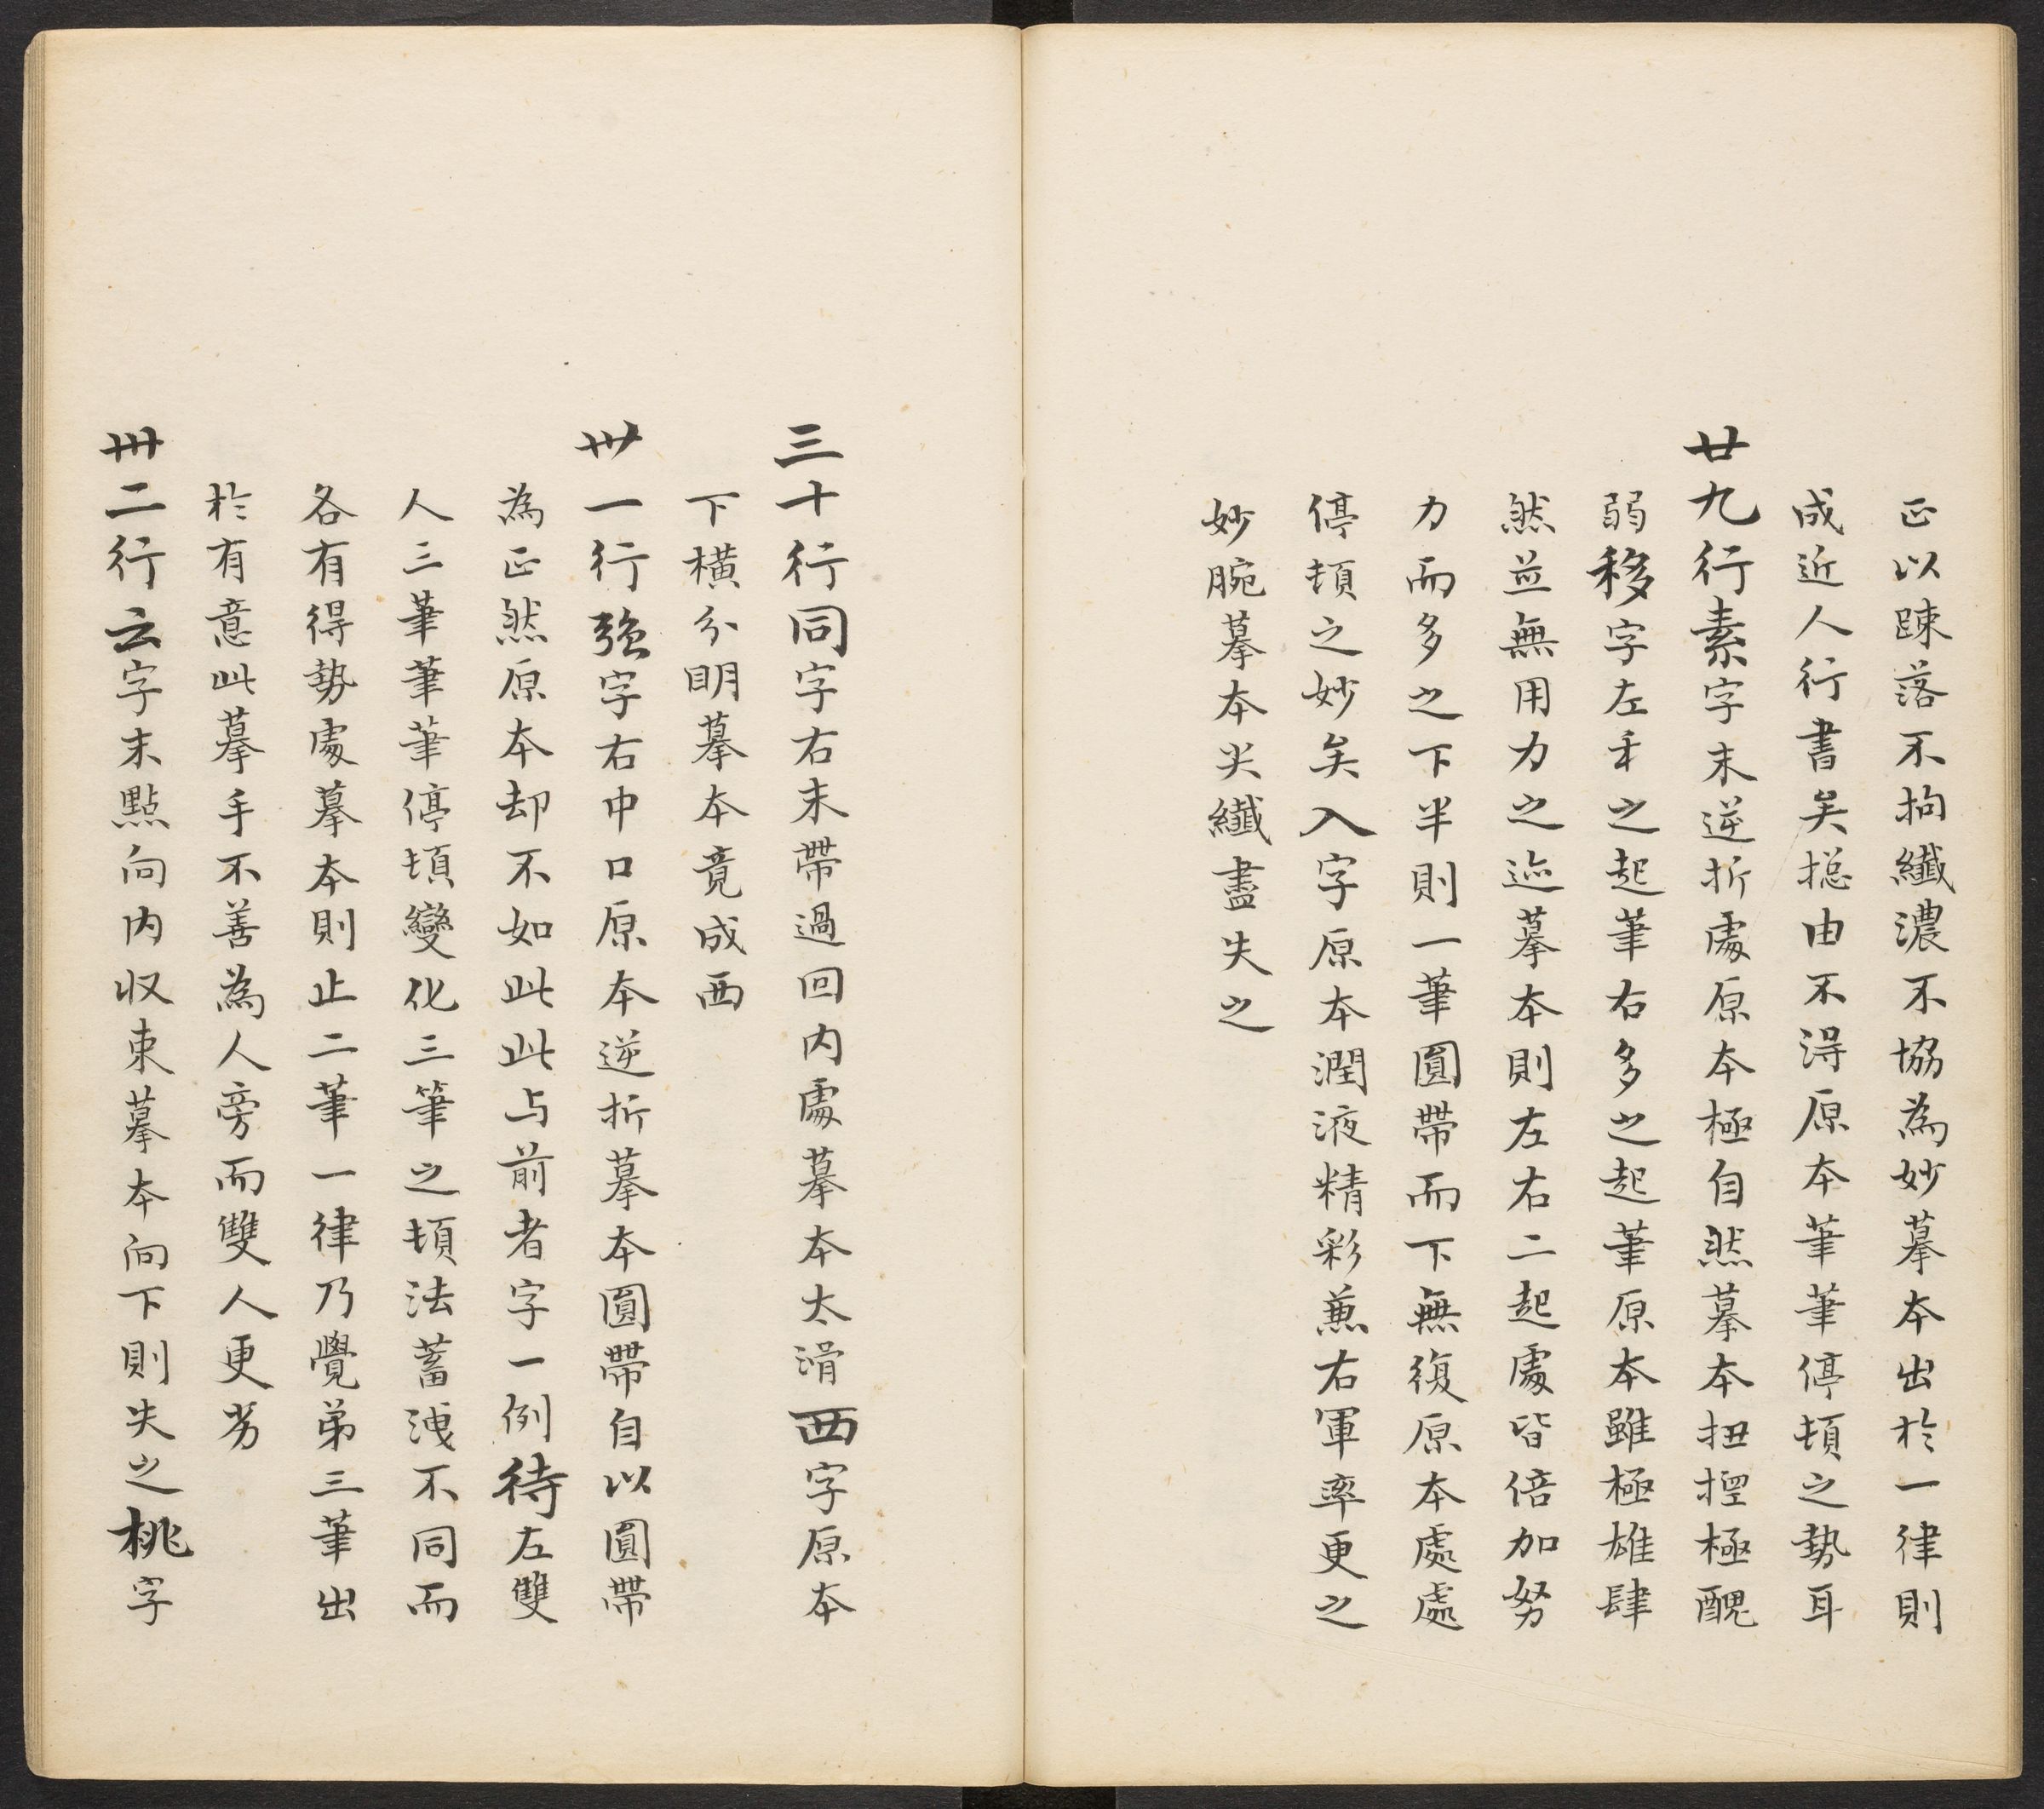 正以踈落不拘纎濃不協為妙摹本出於一律則
成近人行書矣揔由不淂原本筆筆停頓之勢耳
廿九行素字末逆折處原本極自然摹本扭捏極醜
弱移字左禾之起筆右多之起筆原本雖極雄肆
然並無用力之迹摹本則左右二起處皆倍加努
力而多之下半則一筆圓帶而下無復原本處處
停頓之妙矣入字原本潤液精彩兼右軍率更之
妙腕摹本尖纎盡失之
三十行同字右末帶過回内處摹本太滑西字原本
下橫分明摹本竟成西
卅一行強字右中口原本逆折摹本圓帶自以圓帶
為正然原本却不如此此与前者字一例待左雙
人三筆筆筆停頓變化三筆之頓法蓄洩不同而
各有得勢處摹本則止二筆一律乃覺弟三筆出
於有意此摹手不善為人旁而雙人更劣
卅二行云字末點向内收束摹本向下則失之桃字